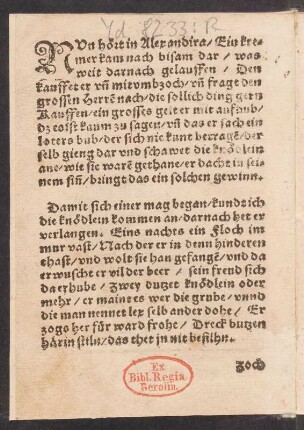 Yd 8233 R
NUn hört in Alexandira / Ein kre-
mer kam nach bisam dar / was
weit darnach gelauffen / Den
kauffet er vñ mit vmbzoch / vñ fragt den
grossen Herrē nach / die sollich ding gern
Kauffen / ein grosses gelt er mit auffhub /
dz es ist kaum zu sagen / vñ das er sach ein
loters bub / der sich nit kunt betragē / der
selb gieng dar vnd schawet die knödlein
ane / wie sie warē gethane / er dacht in sei-
nem siñ / bringt das ein solchen gewinn.
Damit sich einer mag began / kundt ich
die knödlein kommen an / darnach het er
verlangen. Eins nachts ein Floch im
mur vast / Nach der er in denn hinderen
thast / vnd wolt sie han gefangē / vnd da
erwuscht er vil der beer / sein freud sich
da erhube / zwey dutzet knödlein oder
mehr / er maint es wer die grube / vnnd
die man nennet
selb ander dohe / Er
zogs her für ward frohe / Dreck butzen
härin
das thet jn nit
zoch
Ex
Bibl. Regia
Berolin.